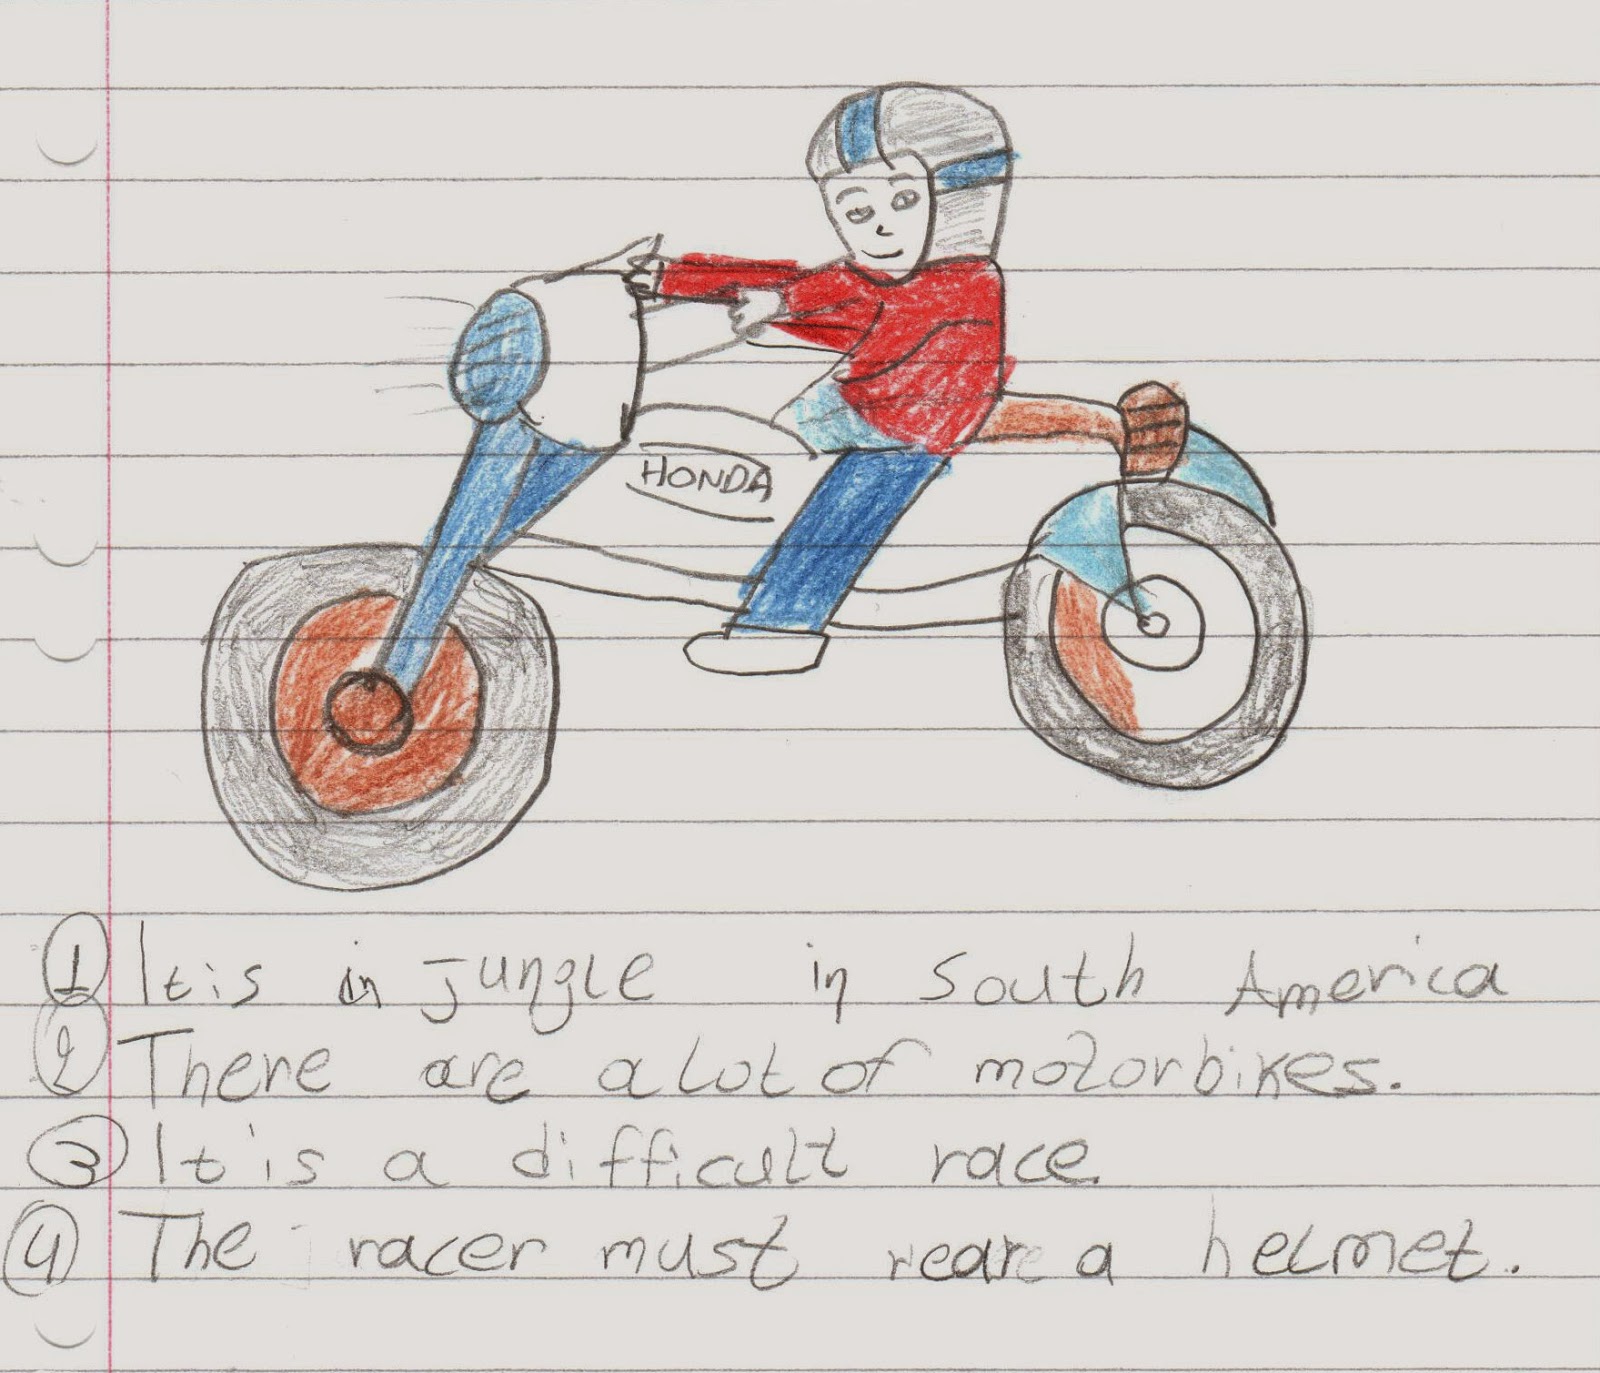 HONDA
① It is in jungle in South America
② There are a lot of motorbikes.
③ It is a difficult race
④ The racer must wear a helmet.